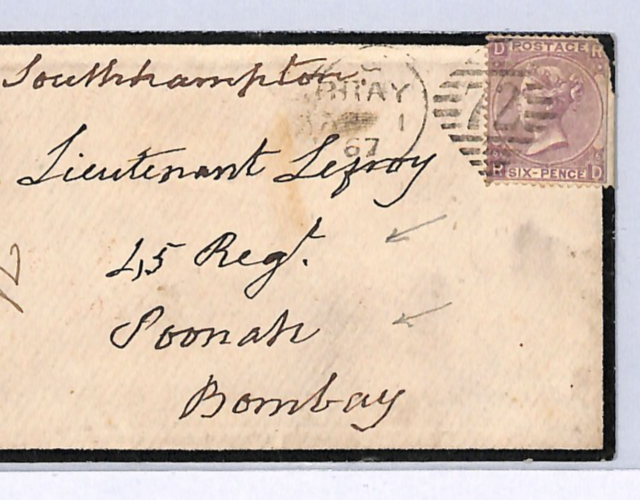 Southhampton
BRAY
1
67
72
D POSTAGE R
R SIX-PENCE D
Lieutenant Lefroy
45 Regt.
Poonah
Bombay